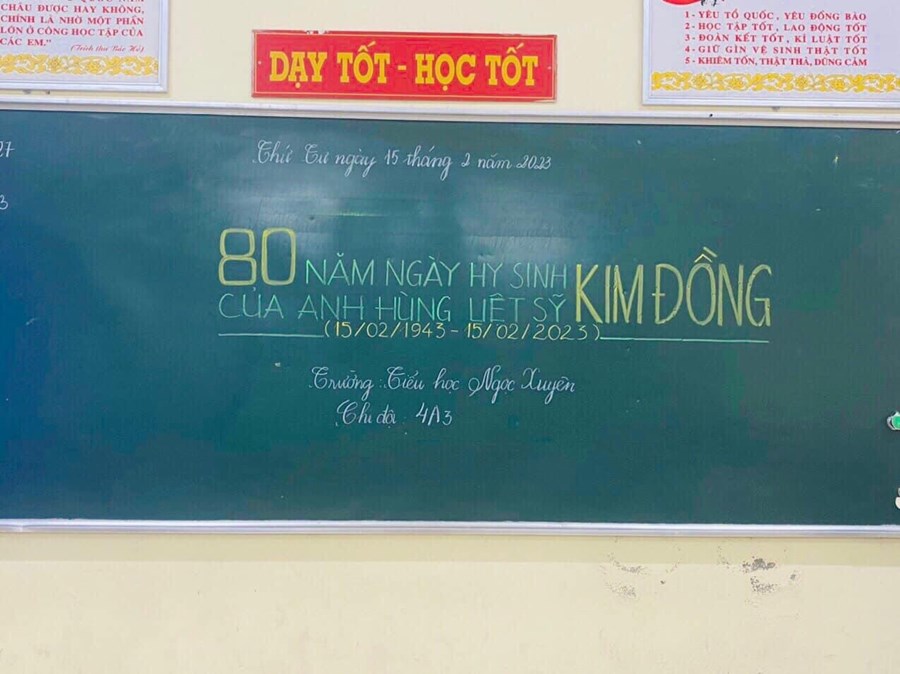 CHÂU ĐƯỢC HAY KHÔNG,
CHÍNH LÀ NHỜ MỘT PHẦN
LỚN Ở CÔNG HỌC TẬP CỦA
CÁC EM."
(Trích thư Bác Hồ)
DẠY TỐT - HỌC TỐT
1 - YÊU TỔ QUỐC, YÊU ĐỒNG BÀO
2 - HỌC TẬP TỐT, LAO ĐỘNG TỐT
3 - ĐOÀN KẾT TỐT, KỈ LUẬT TỐT
4 - GIỮ GÌN VỆ SINH THẬT TỐT
5 - KHIÊM TỐN, THẬT THÀ, DŨNG CẢM
27
3
Thứ Tư ngày 15 tháng 2 năm 2023
80 NĂM NGÀY HY SINH
CỦA ANH HÙNG LIỆT SỸ KIM ĐỒNG
(15/02/1943 - 15/02/2023)
Trường: Tiểu học Ngọc Xuyên
Chi đội: 4A3